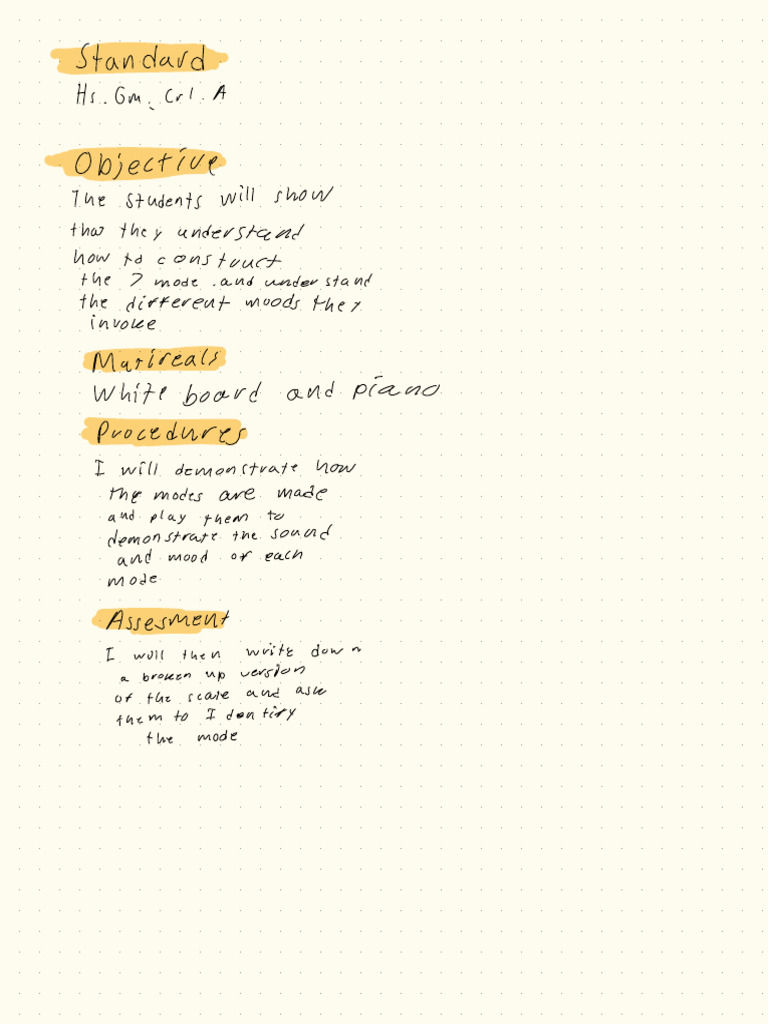 Standard
Hs. Gm. Cr1. A
Objective
The students will show
that they understand
how to construct
the 7 mode .and understand
the different moods they
invoke
Matireals
White board and piano
Procedures
I will demonstrate how
the modes are made
and play them to
demonstrate the sound
and mood of each
mode
Assesment
I will then write down
a broken up version
of the scale and ask
them to Identify
the mode